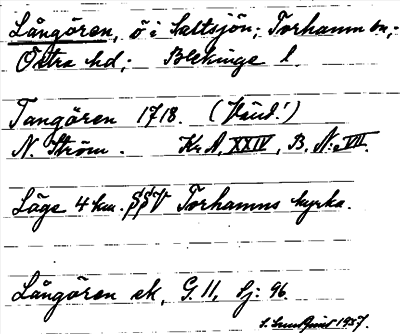 Långören, ö i Saltsjön; Torhamn sn;
Östra hd; Blekinge l.
Tangören 1718. (Vänd!)
N. Ström. Kr. A. XXIV, B. N:o VII.
Läge 4 km. Torhamns kyrka.
Långören ek, G. 11, bj: 96.
S. Sundquist 1927.